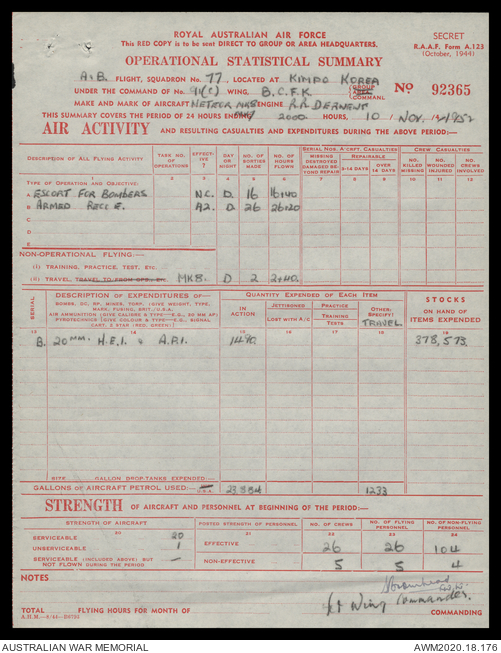 ROYAL AUSTRALIAN AIR FORCE
This RED COPY is to be sent DIRECT TO GROUP OR AREA HEADQUARTERS.
SECRET
R.A.A.F. Form A.123
(October, 1944)
OPERATIONAL STATISTICAL SUMMARY
A+B FLIGHT, SQUADRON No. 77, LOCATED AT KIMPO KOREA
UNDER THE COMMAND OF No. 91(C) WING, B.C.F.K. GROUP COMMAND.
No 92365
MAKE AND MARK OF AIRCRAFT METEOR MK8 ENGINE R.R. DERWENT
THIS SUMMARY COVERS THE PERIOD OF 24 HOURS ENDING 2000 HOURS, 10/ NOV. 1952
AIR ACTIVITY AND RESULTING CASUALTIES AND EXPENDITURES DURING THE ABOVE PERIOD:—
DESCRIPTION OF ALL FLYING ACTIVITY
TASK NO. OF OPERATIONS
EFFECTIVE ?
DAY OR NIGHT
NO. OF SORTIES MADE
NO. OF HOURS FLOWN
SERIAL NOS. A-CFT. CASUALTIES
MISSING DESTROYED DAMAGED BEYOND REPAIR
REPAIRABLE
2-14 DAYS
OVER 14 DAYS
CREW CASUALTIES
NO. KILLED MISSING
NO. WOUNDED INJURED
NO. CREWS INVOLVED
1 2 3 4 5 6 7 8 9 10 11 12
TYPE OF OPERATION AND OBJECTIVE:
A ESCORT FOR BOMBERS NC. D. 16 16:40
B ARMED RECCE. A2. D. 26 26:20
C
D
E
NON-OPERATIONAL FLYING:—
(I) TRAINING, PRACTICE, TEST, ETC.
(II) TRAVEL, TRAVEL TO FROM OPS., ETC. MK8. D 2 2:40.
SERIAL
DESCRIPTION OF EXPENDITURES OF—
BOMBS, DC, RP, MINES, TORP. (GIVE WEIGHT, TYPE, MARK, FUSING, BRIT./U.S.A.
AIR AMMUNITION (GIVE CALIBRE & TYPE—E.G., 20 MM AP)
PYROTECHNICS (GIVE COLOUR & TYPE—E.G., SIGNAL CART. 2 STAR (RED, GREEN))
QUANTITY EXPENDED OF EACH ITEM
IN ACTION
JETTISONED
LOST WITH A/C
PRACTICE
TRAINING
TESTS
OTHER. SPECIFY!
TRAVEL
STOCKS
ON HAND OF ITEMS EXPENDED
13 14 15 16 17 18 19
B. 20MM. H.E.I. & A.P.I. 1490. 378,573.
SIZE GALLON DROP-TANKS EXPENDED:—
GALLONS OF AIRCRAFT PETROL USED:— U.S.A. 23.884 1233
STRENGTH OF AIRCRAFT AND PERSONNEL AT BEGINNING OF THE PERIOD:—
STRENGTH OF AIRCRAFT
POSTED STRENGTH OF PERSONNEL
NO. OF CREWS
NO. OF FLYING PERSONNEL
NO. OF NON-FLYING PERSONNEL
20 21 22 23 24
SERVICEABLE 20
UNSERVICEABLE 1
SERVICEABLE (INCLUDED ABOVE) BUT NOT FLOWN DURING THE PERIOD —
EFFECTIVE 26 26 104
NON-EFFECTIVE 5 5 4
NOTES
W.C.
for Wing Commander.
TOTAL FLYING HOURS FOR MONTH OF
COMMANDING
AUSTRALIAN WAR MEMORIAL
AWM2020.18.176